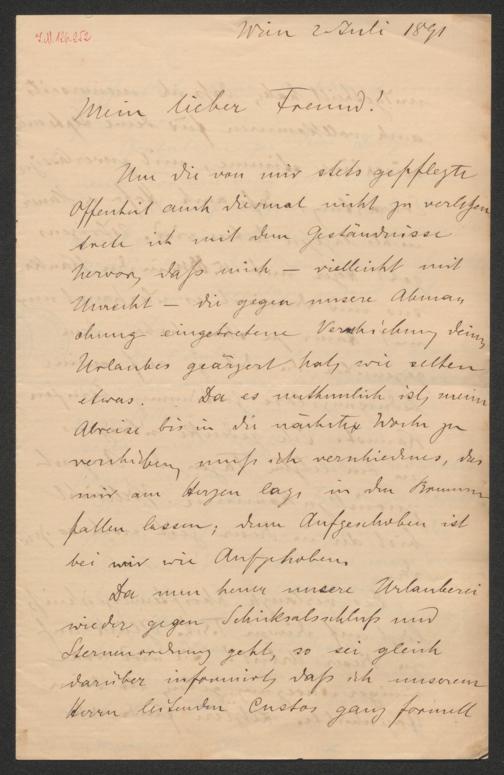 I.N. 126.252
Wien 2 Juli 1891
Mein lieber Freund!
Um die von mir stets gepflegte
Offenheit auch diesmal nicht zu verletzen
trete ich mit dem Geständnisse
hervor, daß mich – vielleicht mit
Unrecht – die gegen unsere Abma-
chung eingetretene Verschiebung deines
Urlaubes geärgert hat, wie selten
etwas. Da es unthunlich ist, meine
Abreise bis in die nächste Woche zu
verschieben, muß ich verschiedenes, das
mir am Herzen lag, in den Brunnen
fallen lassen; denn Aufgeschoben ist
bei mir wie Aufgehoben.
Da nun heuer unsere Urlauberei
wieder gegen Schicksalsschluß und
Sternenordnung geht, so sei gleich
darüber informirt, daß ich unserem
Herrn leitenden Custos ganz formell